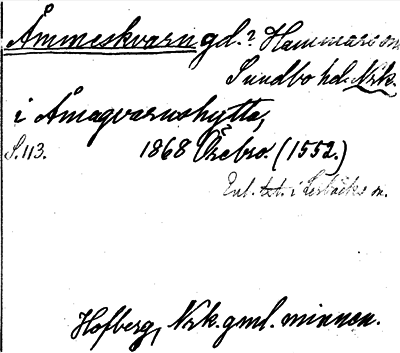 Åmmeskvarn gd.? Hammars sn
Sundbo hd. Nrk.
i Åmagvarnshytta,
S. 113. 1868 Örebro. (1552.)
Enl. txt. i Lerbäcks sn.
Hofberg, Nrk. gml. minnen.